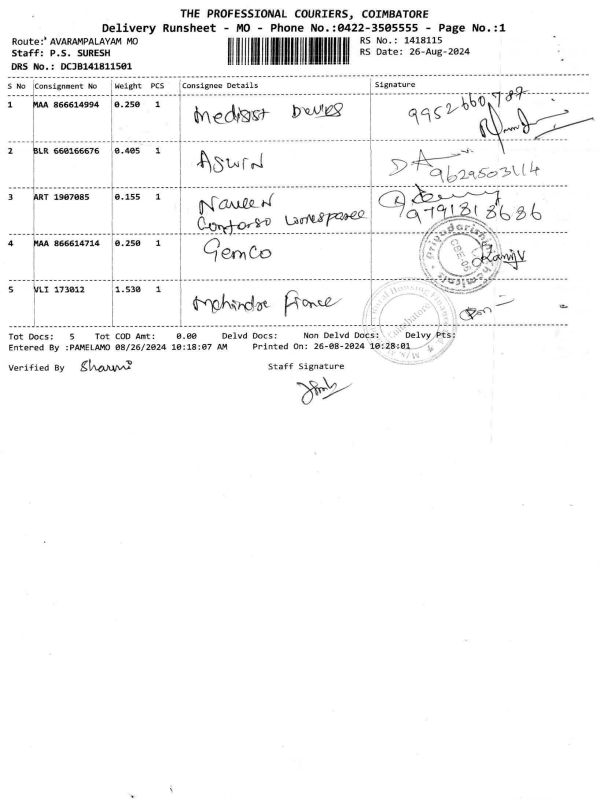 THE PROFESSIONAL COURIERS, COIMBATORE
Delivery Runsheet - MO - Phone No.:0422-3505555 - Page No.:1
Route: AVARAMPALAYAM MO RS No.: 1418115
Staff: P.S. SURESH RS Date: 26-Aug-2024
DRS No.: DCJB141811501
S No Consignment No Weight PCS Consignee Details Signature
1 MAA 866614994 0.250 1 Medisist Devies 9952660787
2 BLR 660166676 0.405 1 ASWIN 9629503114
3 ART 1907085 0.155 1 Naveen
Contorso 9791818686
4 MAA 866614714 0.250 1 Gemco
5 VLI 173012 1.530 1 Mahindra
Tot Docs: 5 Tot COD Amt: 0.00 Delvd Docs: Non Delvd Docs: Delvy Pts:
Entered By :PAMELAMO 08/26/2024 10:18:07 AM Printed On: 26-08-2024 10:28:01
Verified By Sharmi Staff Signature